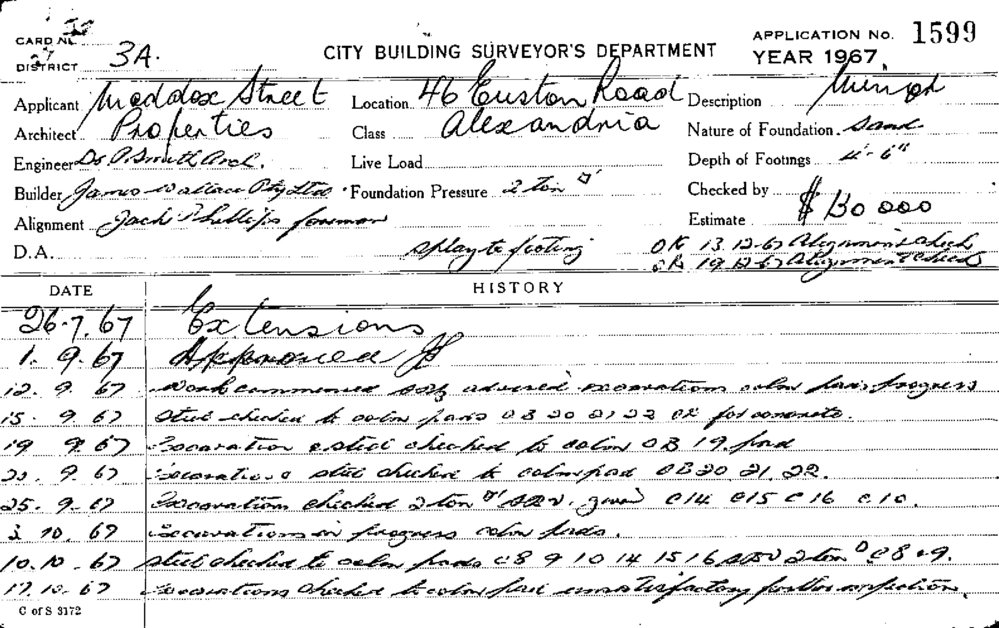 CARD No.
DISTRICT 3A.
CITY BUILDING SURVEYOR'S DEPARTMENT
APPLICATION No. 1599
YEAR 1967
Applicant Maddox Street Location 46 Euston Road Description
Architect Properties Class Alexandria Nature of Foundation. Sand
Engineer Dr P. Smith Arch. Live Load Depth of Footings 4'-6"
Builder James Wallace Pty Ltd. Foundation Pressure 2 ton □' Checked by
Alignment Jack Phillips foreman Estimate $130 000
D.A. splay to footing OK 13.12.67 Alignment check
OK 19.12.67 Alignment check
DATE HISTORY
26.7.67 Extensions
1.9.67 Approved
12.9.67 Work commenced advised excavations colm pads progress
15.9.67 Steel checked to colm pads 20 21 22 OK for concrete.
19 9.67 Excavation & steel checked to colm 19 pad
9.67 Excavation & steel checked to colm pad 20 21.22.
25.9.67 Excavation checked 2 ton □' given C14 C15 C16 C10.
3 10.67 Excavations in progress colm pads.
10.10.67 Steel checked to colm pads C8 9 10 14 15 16 2 ton □' C8 C9.
17.10.67 Excavations checked to colm unsatisfactory further inspection.
C of S 3172